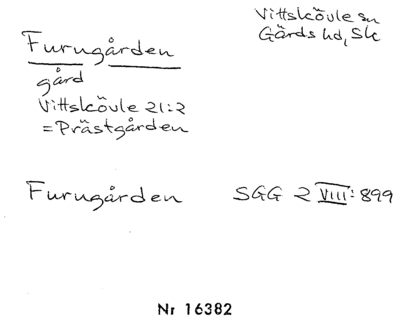 Vittskövle sn
Gärds hd, Sk
Furugården
gård
Vittskövle 21:2
= Prästgården
Furugården SGG 2 VIII: 899
Nr 16382